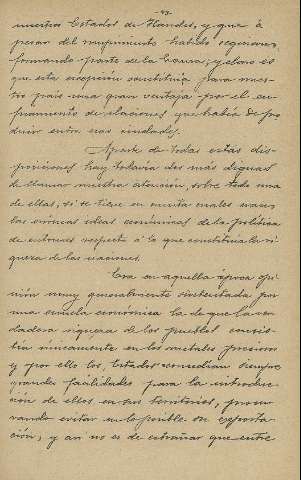 nuestros Estados de Flandes, y que á
pesar del rompimiento habido seguirian
formando parte de la Corona; y claro es
que esta excepción constituia para nues-
tro pais una gran ventaja por el au-
mento de relaciones que habia de pro
ducir entre esas ciudades.
Aparte de todas estas dis-
posiciones hay todavia dos más dignas
de llamar nuestra atencion, sobre todo una
de ellas, si se tiene en cuenta cuales eran
las erróneas ideas económicas de la politica
de entonces respecto á lo que constituia la ri-
queza de las naciones.
Era en aquella época opi-
nión muy generalmente sustentada por
una escuela económica la de que la ver-
dadera riqueza de los pueblos consis-
tia únicamente en los metales preciosos
y por ello los Estados concedian siempre
grandes facilidades para la introduc-
ción de ellos en sus territorios, procu-
rando evitar en lo posible su exporta-
ción; y asi no es de extrañar que entre